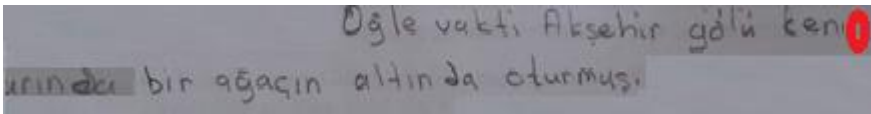 Öğle vakti Akşehir gölü ken
arında bir ağaçın altında oturmuş.